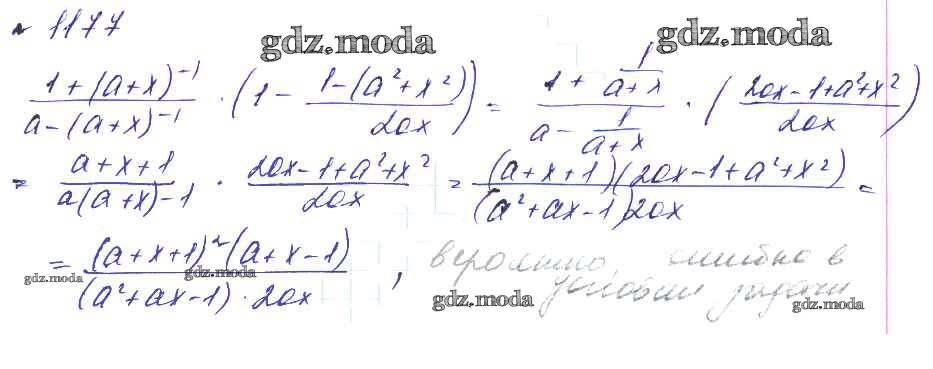 № 1177
gdz.moda
gdz.moda
\frac{1+(a+x)^{-1}}{a-(a+x)^{-1}} · (1 - \frac{1-(a^2+x^2)}{2ax}) = \frac{1+\frac{1}{a+x}}{a-\frac{1}{a+x}} · (\frac{2ax-1+a^2+x^2}{2ax})
= \frac{a+x+1}{a(a+x)-1} · \frac{2ax-1+a^2+x^2}{2ax} = \frac{(a+x+1)(2ax-1+a^2+x^2)}{(a^2+ax-1)2ax} =
= \frac{(a+x+1)^2(a+x-1)}{(a^2+ax-1)·2ax}, вероятно, ошибка в
условии задачи
gdz.moda
gdz.moda
gdz.moda
gdz.moda